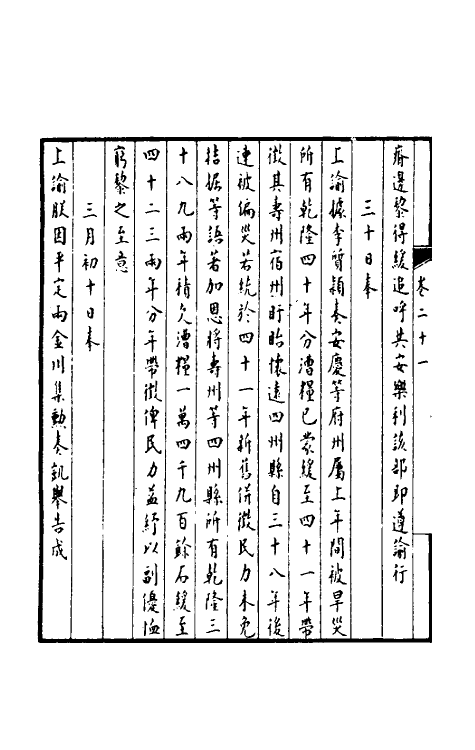 卷二十一
瘠邊黎得緩追呼共安樂利該部即遵諭行
三十日奉
上諭據李質穎奏安慶等府州屬上年間被旱災
所有乾隆四十年分漕糧已蒙緩至四十一年帶
徵其壽州宿州盱眙懷遠四州縣自三十八年後
連被偏災若統於四十一年新舊併徵民力未免
拮据等語著加恩將壽州等四州縣所有乾隆三
十八九兩年積欠漕糧一萬四千九百餘石緩至
四十二三兩年分年帶徵俾民力益紓以副優恤
窮黎之至意
三月初十日奉
上諭朕因平定兩金川集勳奏凱舉告成